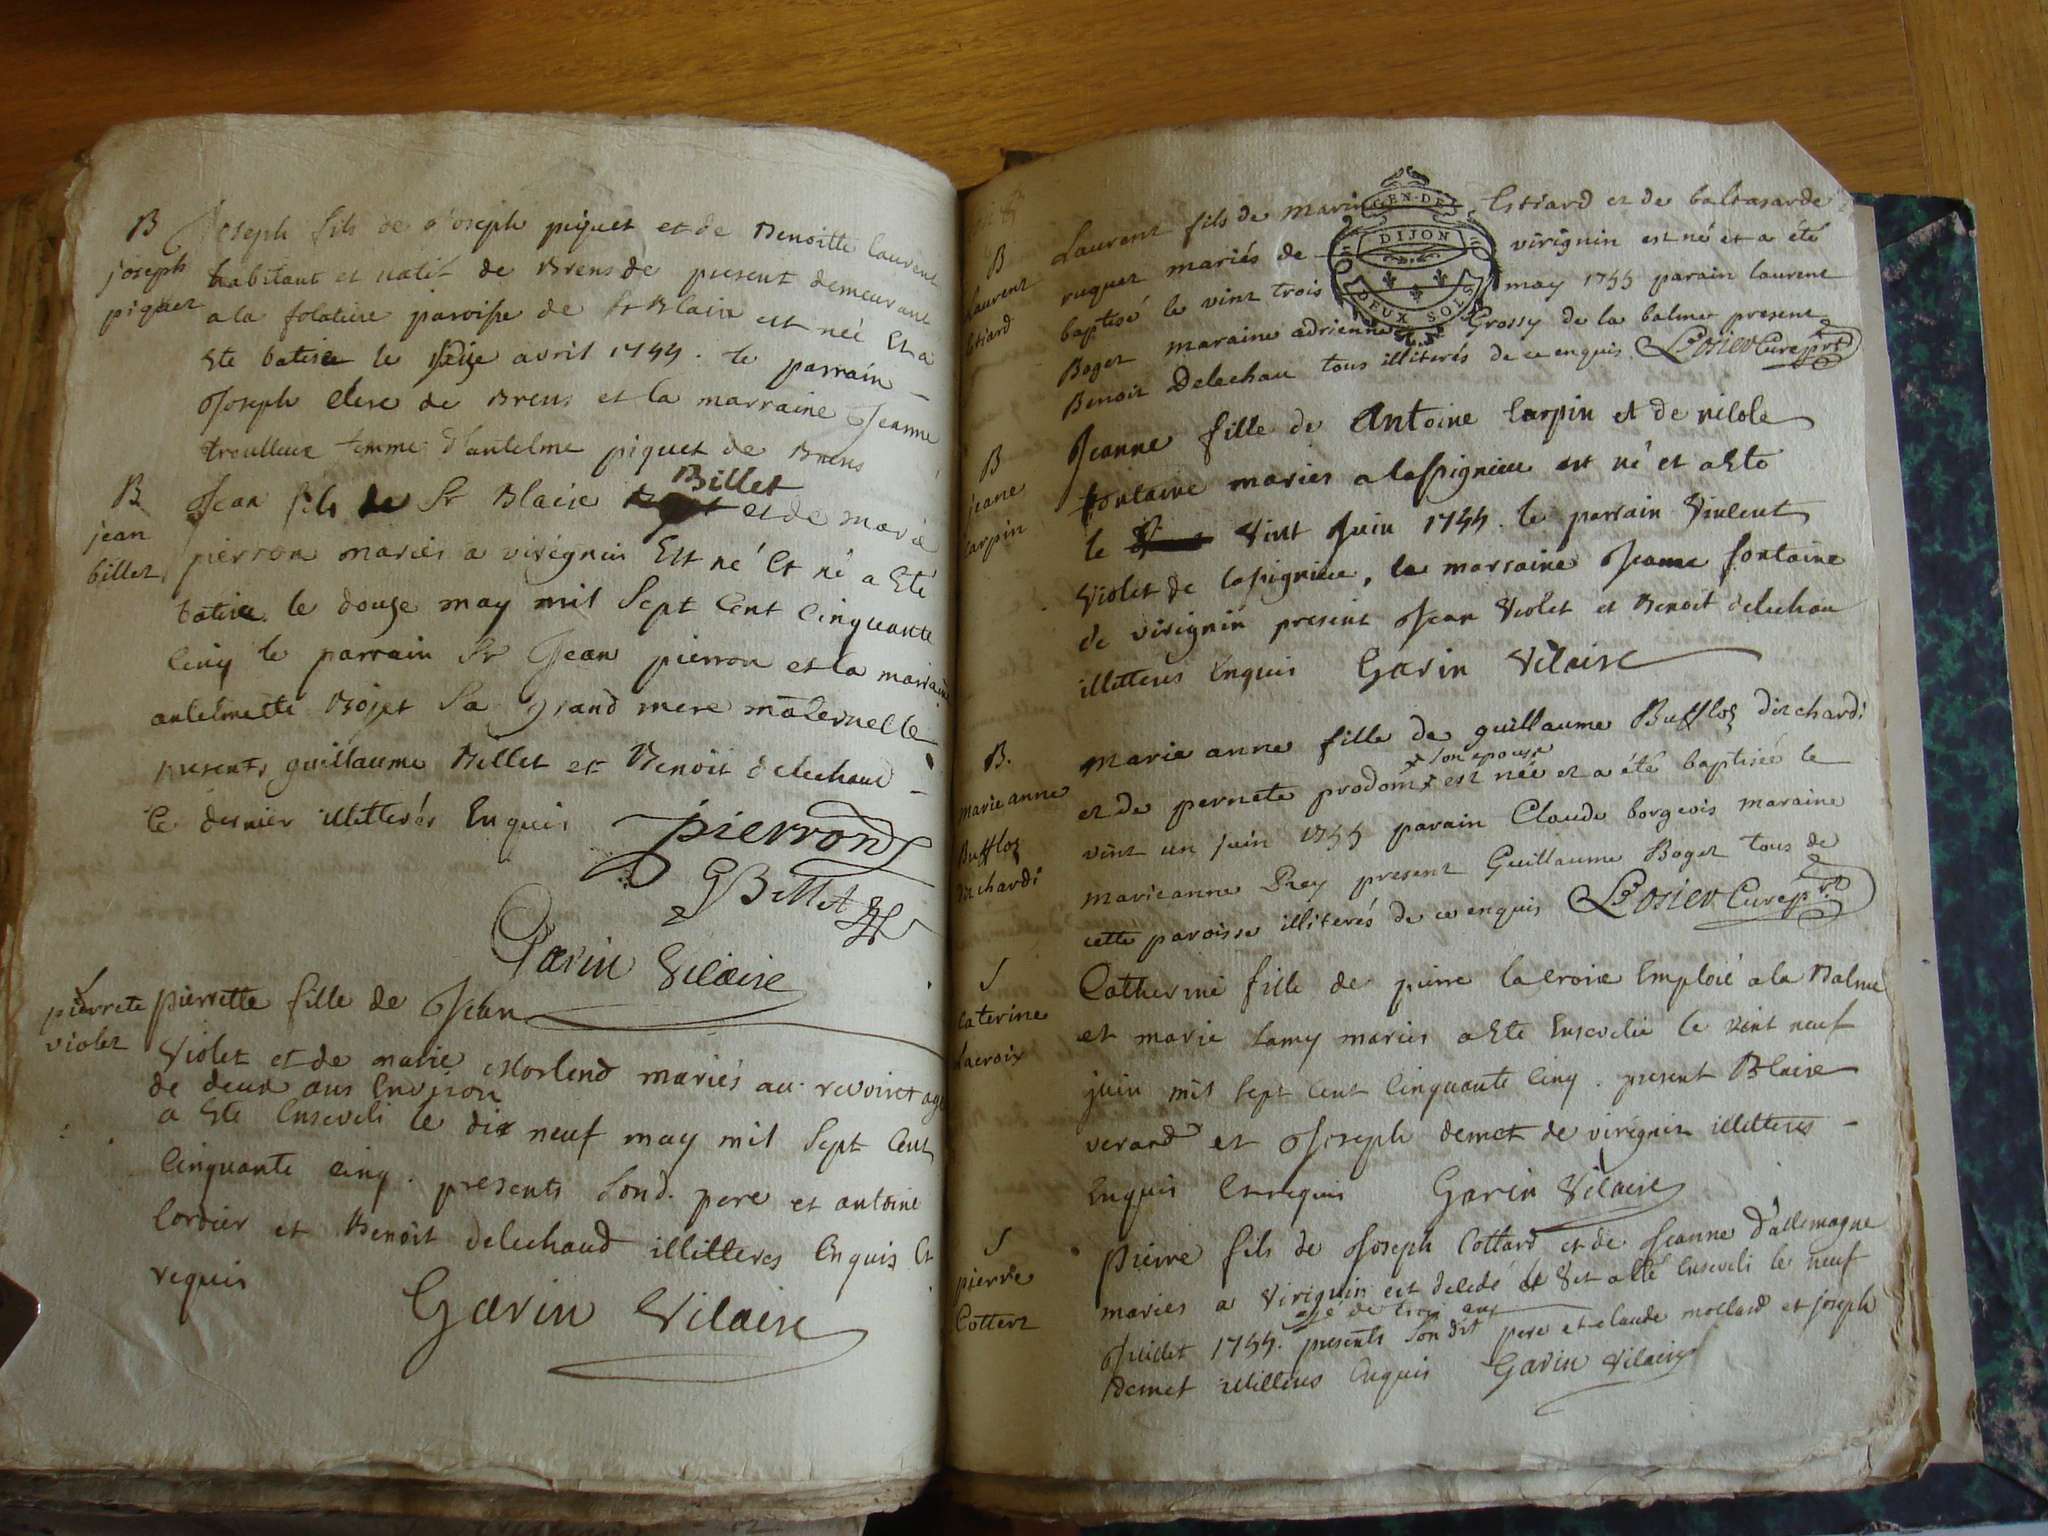 B
joseph
piquet
Joseph fils de Joseph piquet et de Benoitte laurent
habitant et natif de Brens de present demeurant
a la folatiere paroisse de St Blaise est néé Et a
Ete batisée le seize avril 1755. le parrain
Joseph clerc de Brens et la marraine Jeanne
femme d'antelme piquet de Brens
B
jean
billet
Jean fils de Sr Blaise Billet et de marie
pierron mariés a virignin Est né Et né a Eté
batisé le douze may mil Sept Cent Cinquante
Cinq le parrain Sr Jean pierron et la marraine
antelmette Bojet Sa grand mere maternelle
presents guillaume Billet et Benoit delechaud
Ce dernier illitterés Enquis
pierrond
GBillet
Garin Vicaire
S
pierrete
violet
pierrette fille de Jean
Violet et de marie Morlend mariés au revoiret agé
de deux ans Environ
a Ete Enseveli le dix neuf may mil Sept Cent
Cinquante cinq. presents Sond. pere et antoine
Cordier et Benoit delechaud illitteres Enquis Et
requis
Garin Vicaire
B
laurent
Estiard
Laurent fils de Marin Estiard et de baltasarde
ruquet mariés de virignin est né et a été
baptisé le vint trois may 1755 parain laurent
Boget maraine adrienne Grossy de la balme present
Benoit Delechau tous illiterés de ce enquis Losier Curé prt
GEN. DE
DIJON
DEUX SOLS
B
jeane
carpin
Jeanne fille de Antoine Carpin et de nicole
fontaine maries a lassignieu est né et a Ete
le vint Juin 1755. le parrain Vincent
Violet de lassignieu, la marraine Jeanne fontaine
de virignin present Jean Violet et Benoit delechau
illitteres Enquis Garin Vicaire
B.
marie anne
Buffloz
dit chardi
marie anne fille de guillaume Buffloz dit chardi
et de pernete prodom × est née et a été baptisée le
× son epouse
vint un juin 1755 parain Claude borgeois maraine
marieanne Rey present Guillaume Boget tous de
cette paroisse illiterés de ce enquis Losier Curé prt
S
Caterine
Lacroix
Catherine fille de pierre la croix Emploié a la Balme
et marie Lamy maries a Ete Ensevelie le vint neuf
juin mil Sept Cent Cinquante Cinq. present Blaise
verand et Joseph demet de virignin illitteres
Enquis Et requis Garin Vicaire
S
pierre
Cottert
Pierre fils de Joseph Cottard et de Jeanne d'allemagne
maries a Virignin est decedé et a Eté Enseveli le neuf
agé de trois ans
Juillet 1755. presents Son dit pere et claude mollard et joseph
demet illitteres Enquis Garin Vicaire